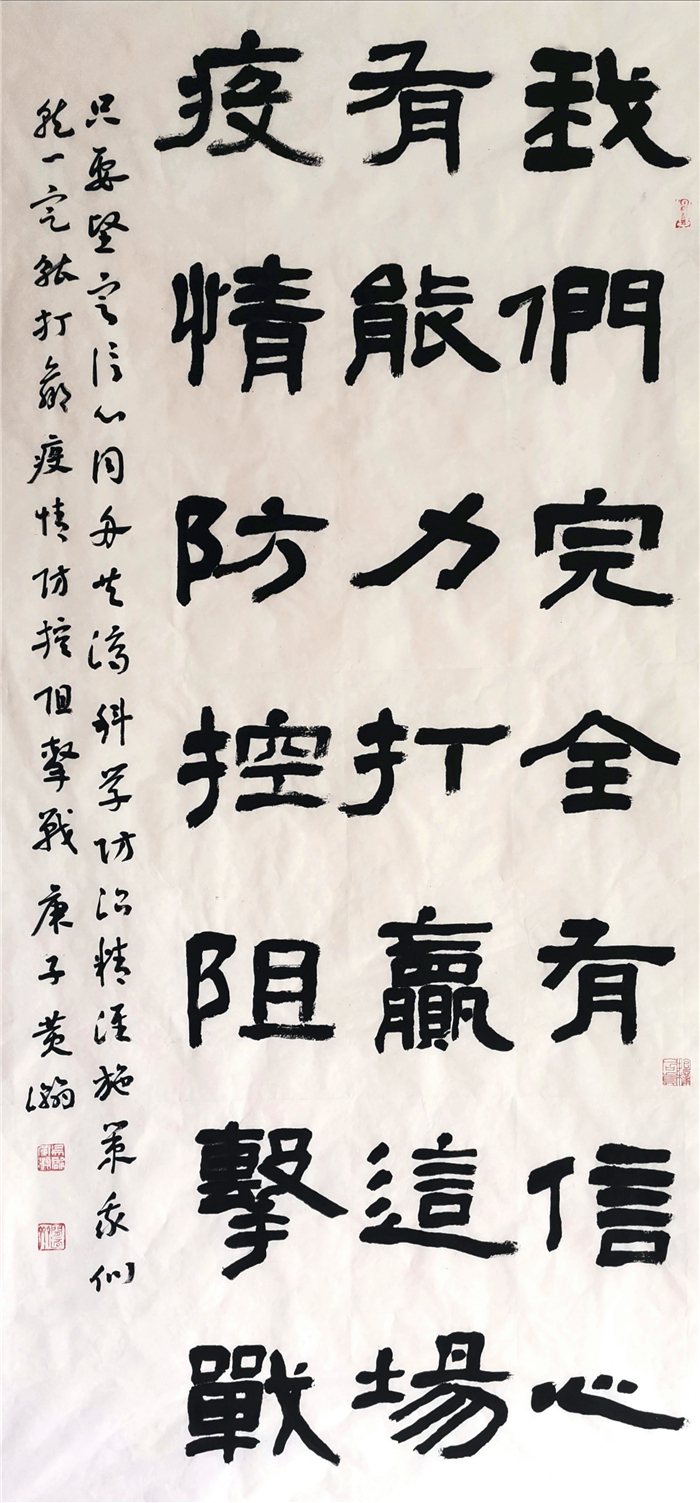 我們完全有信心
有能力打贏這場
疫情防控阻擊戰
只要坚定信心同舟共济科学防治精准施策我们
就一定能打赢疫情防控阻擊戰庚子黄瀚